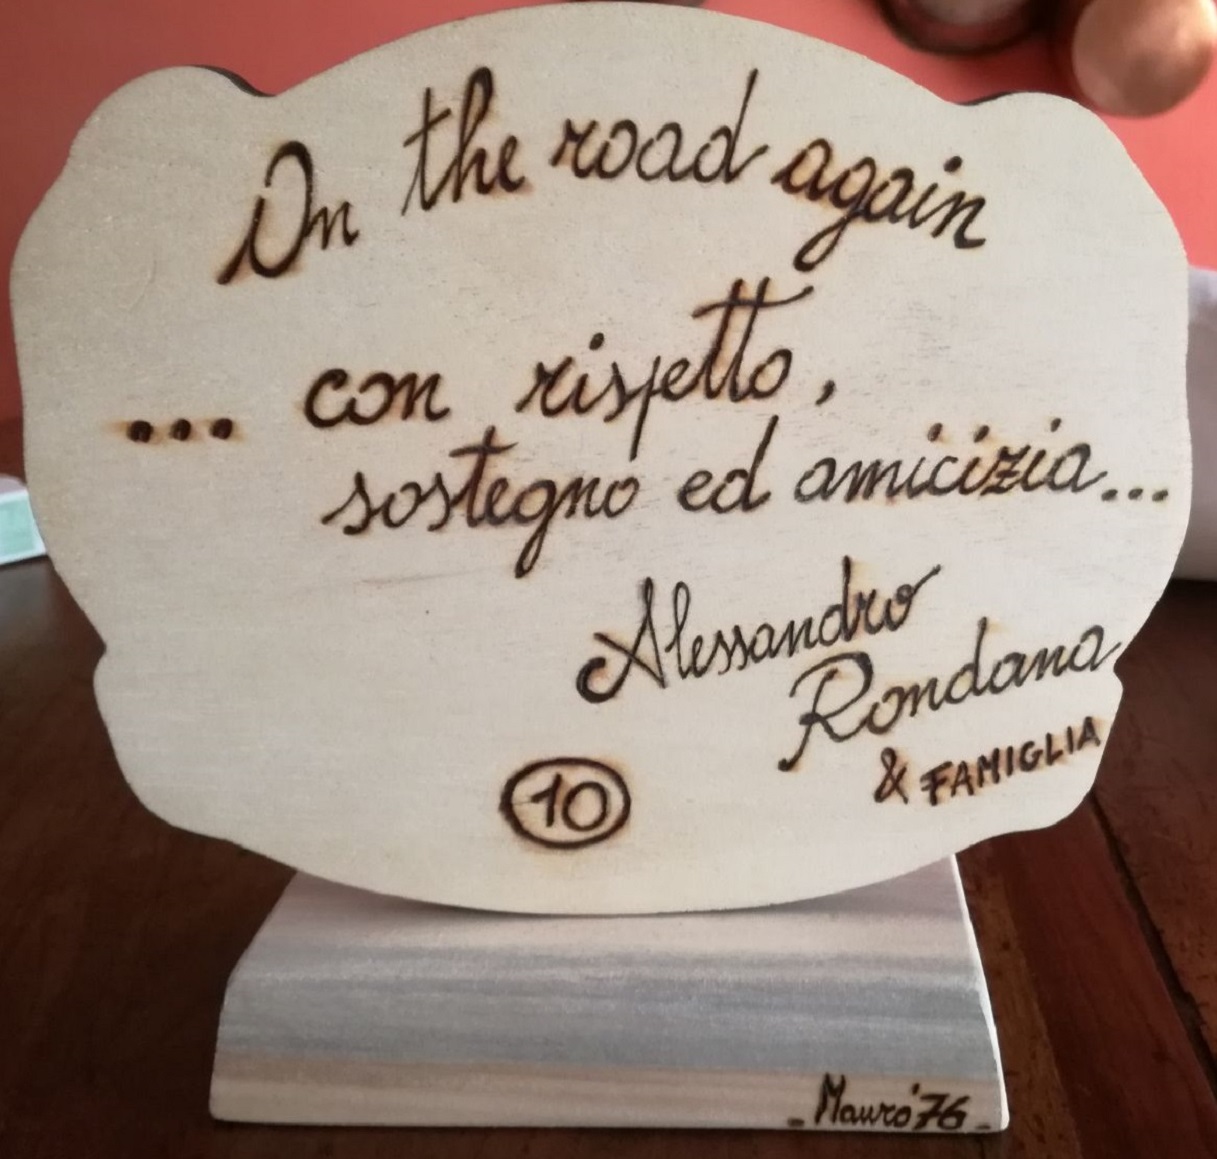 On the road again
... con rispetto,
sostegno ed amicizia...
Alessandro
Rondana
& FAMIGLIA
10
- Mauro '76 -